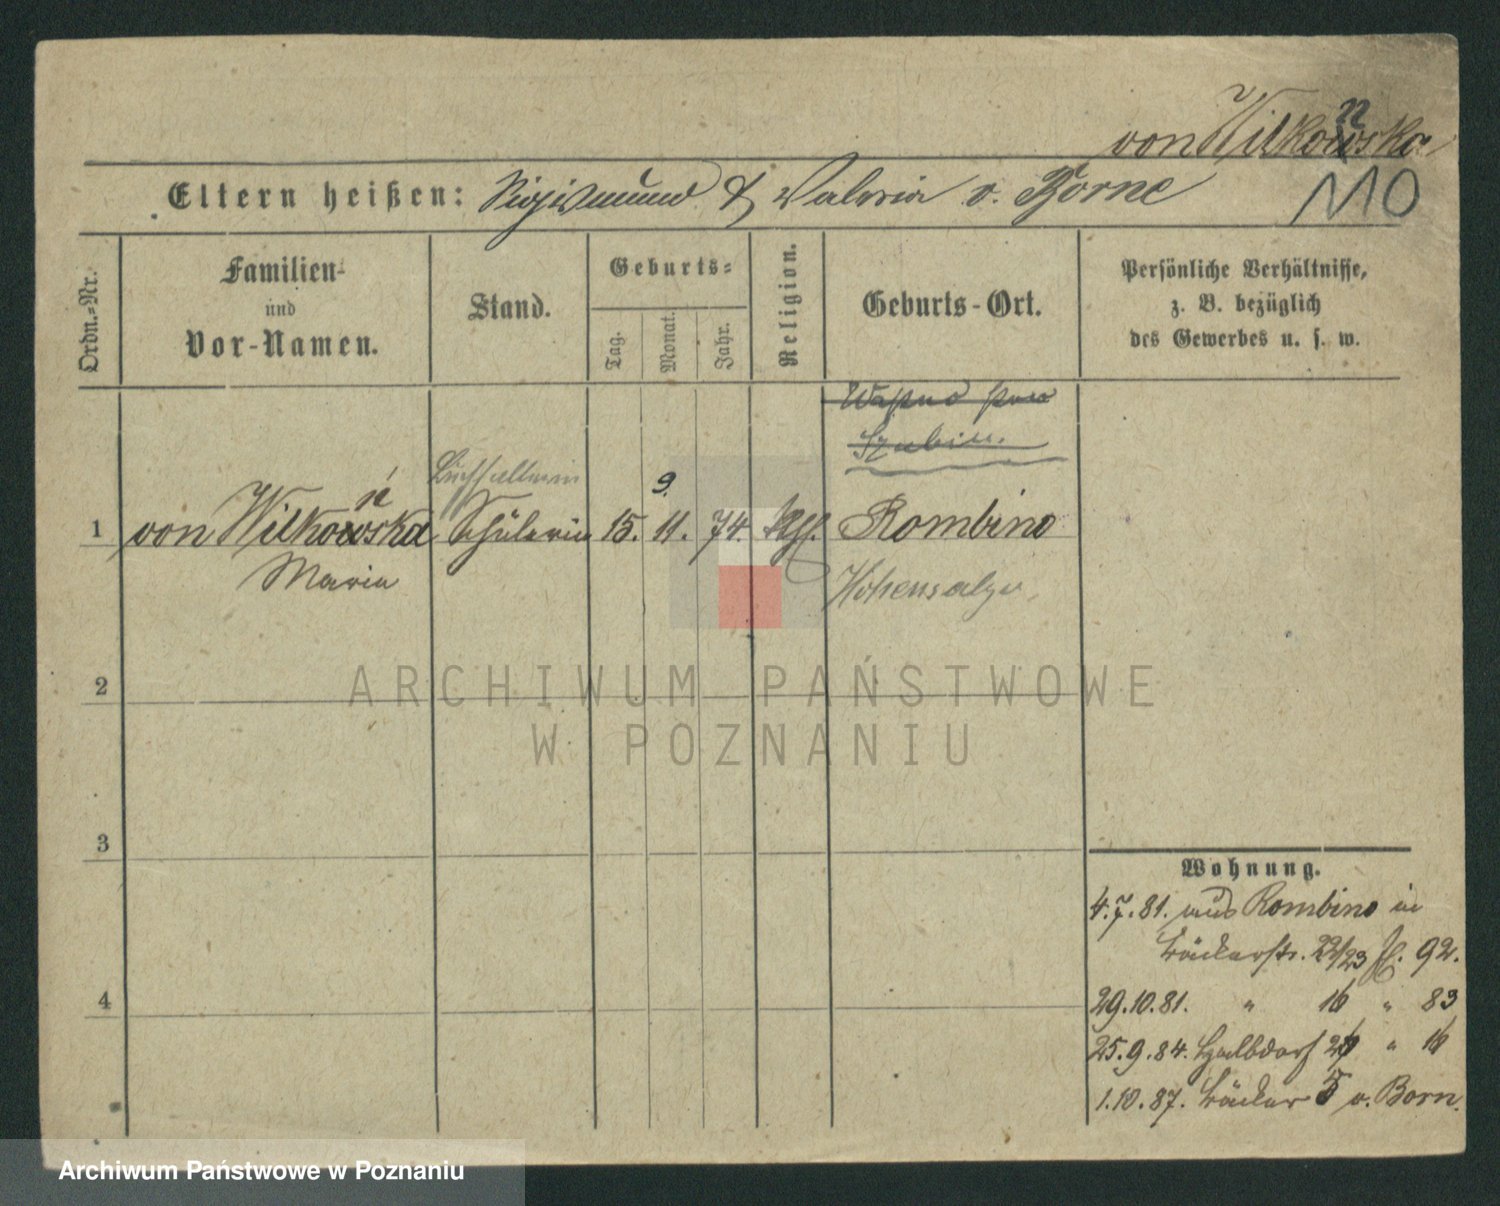 von Wilkońska
Eltern heißen: Sigismund & Valeria v. Borne
110
Ordn.-Nr.
Familien-
und
Vor-Namen.
Stand.
Geburts-
Tag.
Monat.
Jahr.
Religion.
Geburts-Ort.
Persönliche Verhältnisse,
z. B. bezüglich
des Gewerbes u. s. w.
Wapno
Szubin.
Buchhalterin
9.
1 von Wilkońska Schülerin 15. 11. 74. kth. Rombino
Maria
Hohensalza
2
3
4
Wohnung.
4.7.81. aus Rombino in
Bäckerstr. 22/23 92.
29.10.81. " 16 " 83
25.9.84. Halbdorf " 16
1.10.87. Bäcker 5 v. Born.
ARCHIWUM PAŃSTWOWE
W POZNANIU
Archiwum Państwowe w Poznaniu